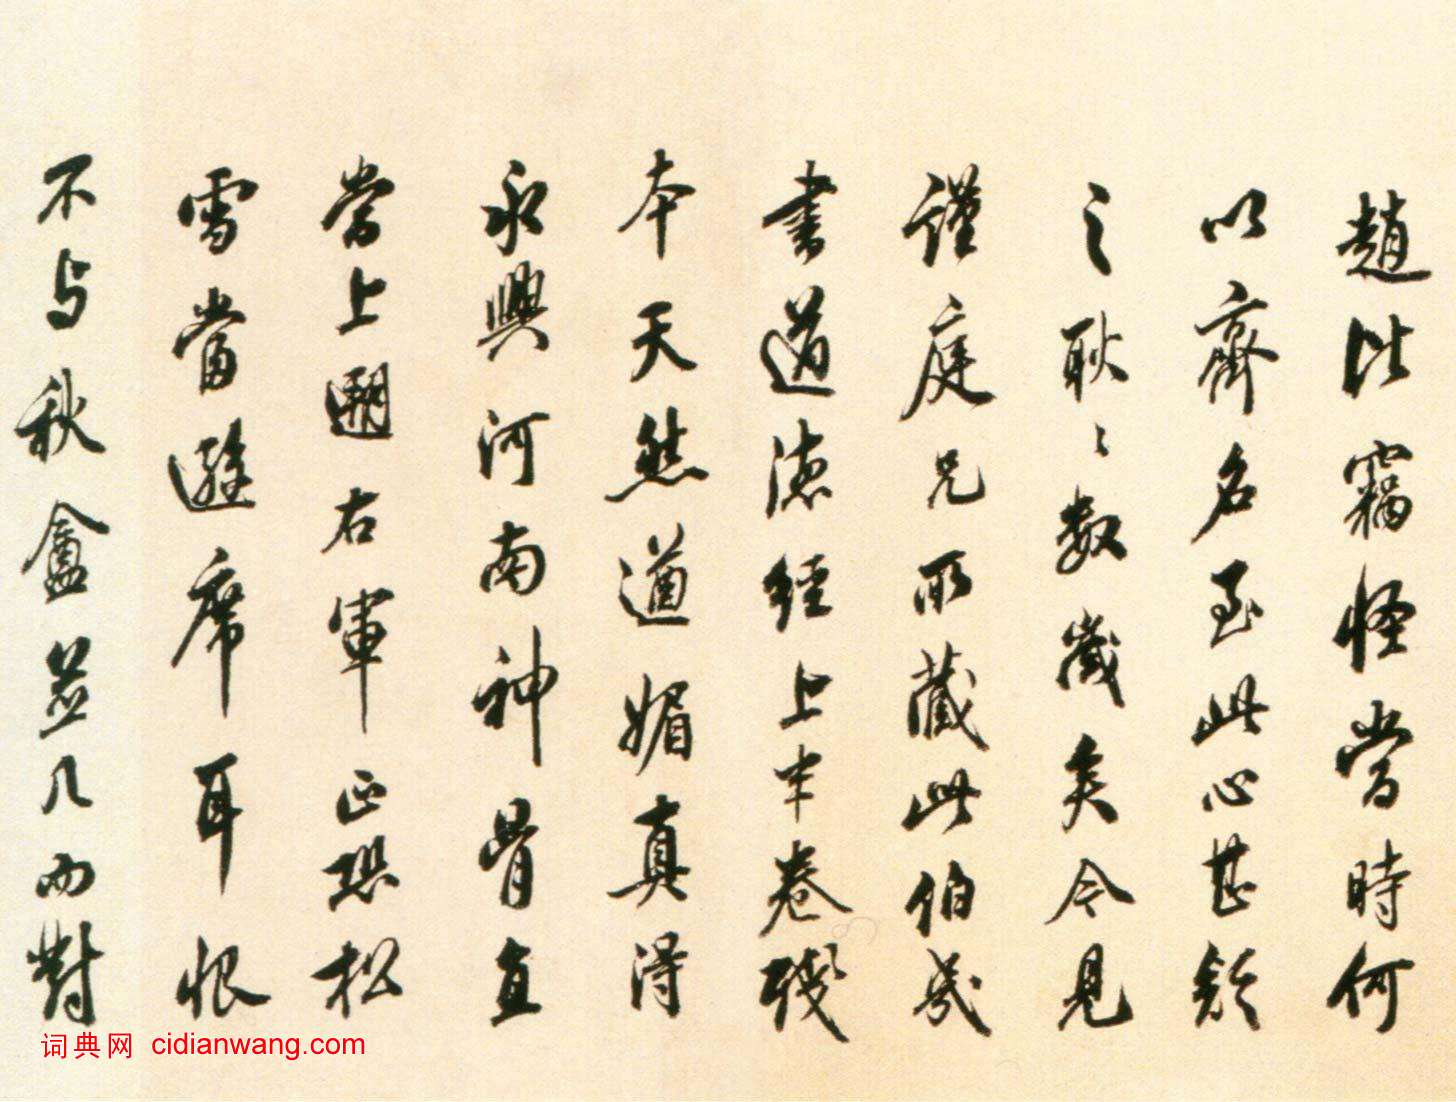 趙比竊怪當時何
以齊名至此心甚疑
之耿〻數歲矣今見
謹庭兄所藏此伯幾
書道德經上半卷殘
本天然遒媚真得
永興河南神骨直
當上闚右軍正恐松
雪當避席耳恨
不与秋盦並几而對
词典网 cidianwang.com